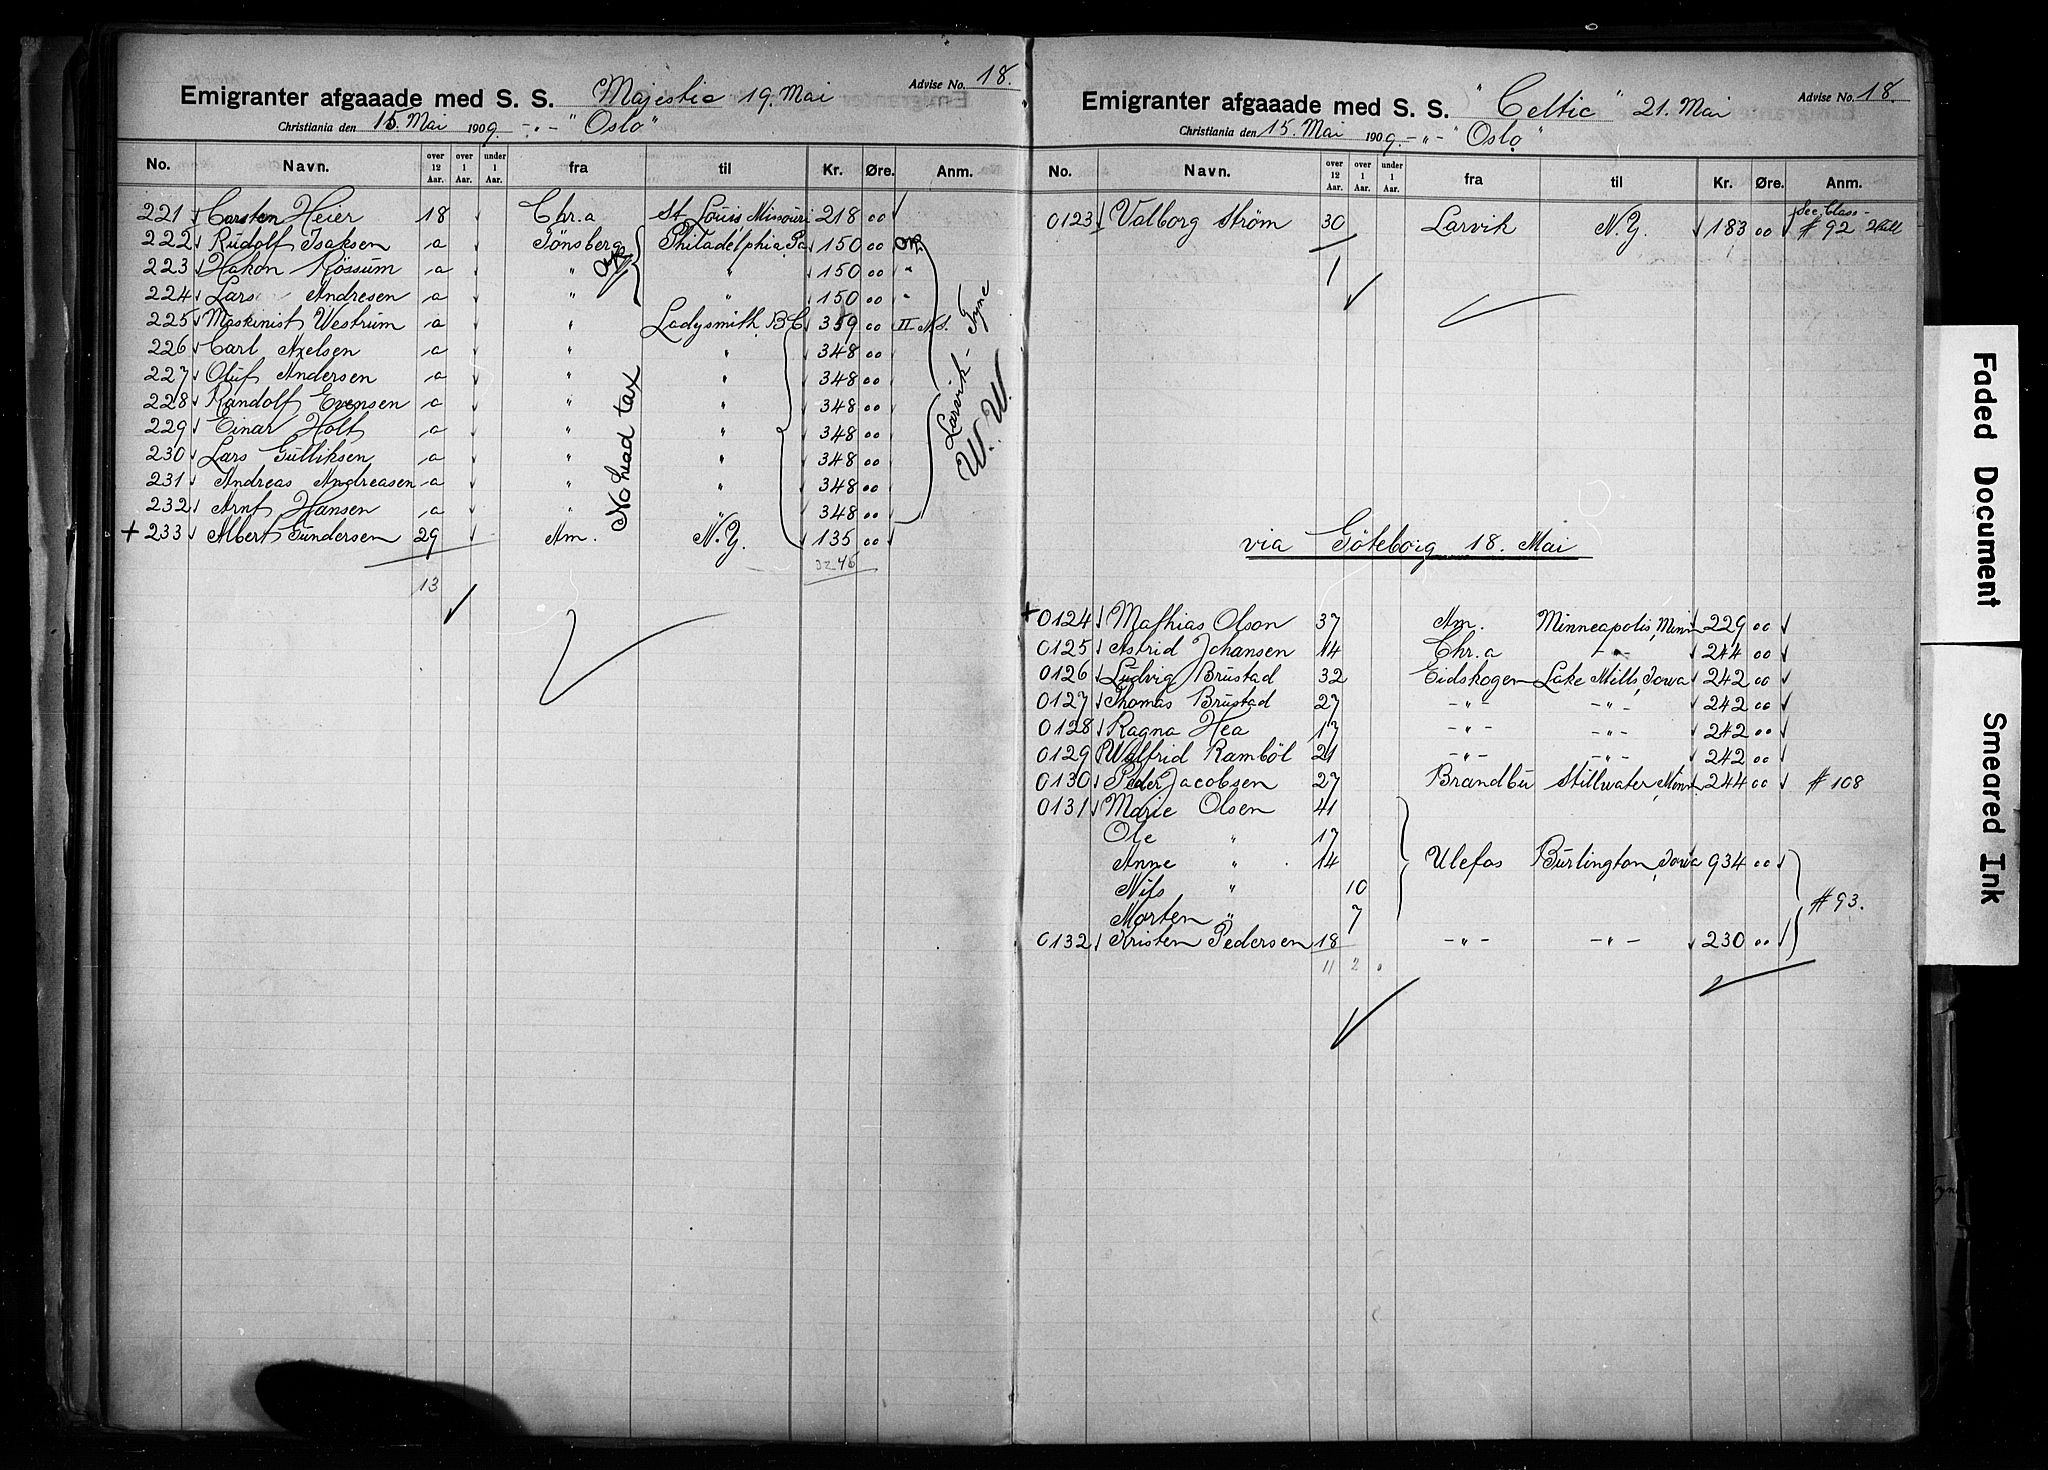 Emigranter afgaaade med S. S. Majestic 19. Mai Advise No. 18.
Christiania den 15. Mai 1909. -„- "Oslo"
No. Navn. over 12 Aar. over 1 Aar. under 1 Aar. fra til Kr. Øre. Anm.
221 Carsten Heier 18 Chr.a St. Louis Missouri 218 00
222 Rudolf Isaksen a Tönsberg Philadelphia Pa 150 00
223 Hakon Rössum a " " 150 00 "
224 Lars Andresen a " " 150 00 "
225 Maskinist Westrum a " Ladysmith B.C 359 00 II
226 Carl Axelsen a " " 348 00
227 Oluf Andersen a " " 348 00
228 Randolf Evensen a " " 348 00
229 Einar Holt a " " 348 00
230 Lars Gulliksen a " " 348 00
231 Andreas Andreasen a " " 348 00
232 Arnt Hansen a " " 348 00
+ 233 Albert Gundersen 29 Am. N.Y. 135 00
13
No head tax
Larvik - Tyne
W. W.
Emigranter afgaaade med S. S. "Celtic" 21. Mai Advise No. 18.
Christiania den 15. Mai 1909. -„- "Oslo"
No. Navn. over 12 Aar. over 1 Aar. under 1 Aar. fra til Kr. Øre. Anm.
0123 Valborg Ström 30 Larvik N.Y. 183 00 Sec. Class # 92
1
via Göteborg 18. Mai
+ 0124 Mathias Olson 37 Am. Minneapolis, Minn 229 00
0125 Astrid Johansen 14 Chr.a -„- 244 00
0126 Ludvig Brustad 32 Eidskogen Lake Mills, Iowa 242 00
0127 Thomas Brustad 27 -„- -„- 242 00
0128 Ragna Hea 17 -„- -„- 242 00
0129 Walfrid Ramböl 21 -„- -„- 242 00
0130 Peder Jacobsen 27 Brandbu Stillwater, Minn 244 00 # 108
0131 Marie Olsen 41
Ole " 17
Anne " 14 Ulefos Burlington, Iowa 934 00
Nils " 10
Morten " 7 # 93.
0132 Kristen Pedersen 18 -„- -„- 230 00
11 2
Faded Document
Smeared Ink